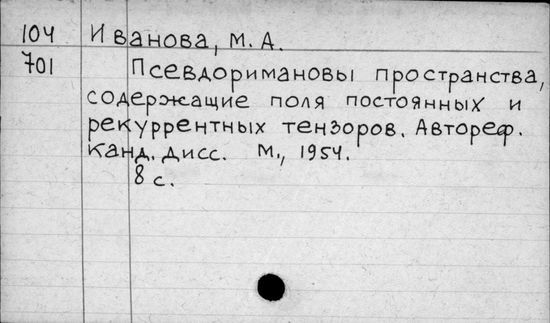 104 Иванова, М. А.
701 Псевдоримановы пространства,
содержащие поля постоянных и
рекуррентных тензоров. Автореф.
канд. дисс. М., 1954.
8 с.